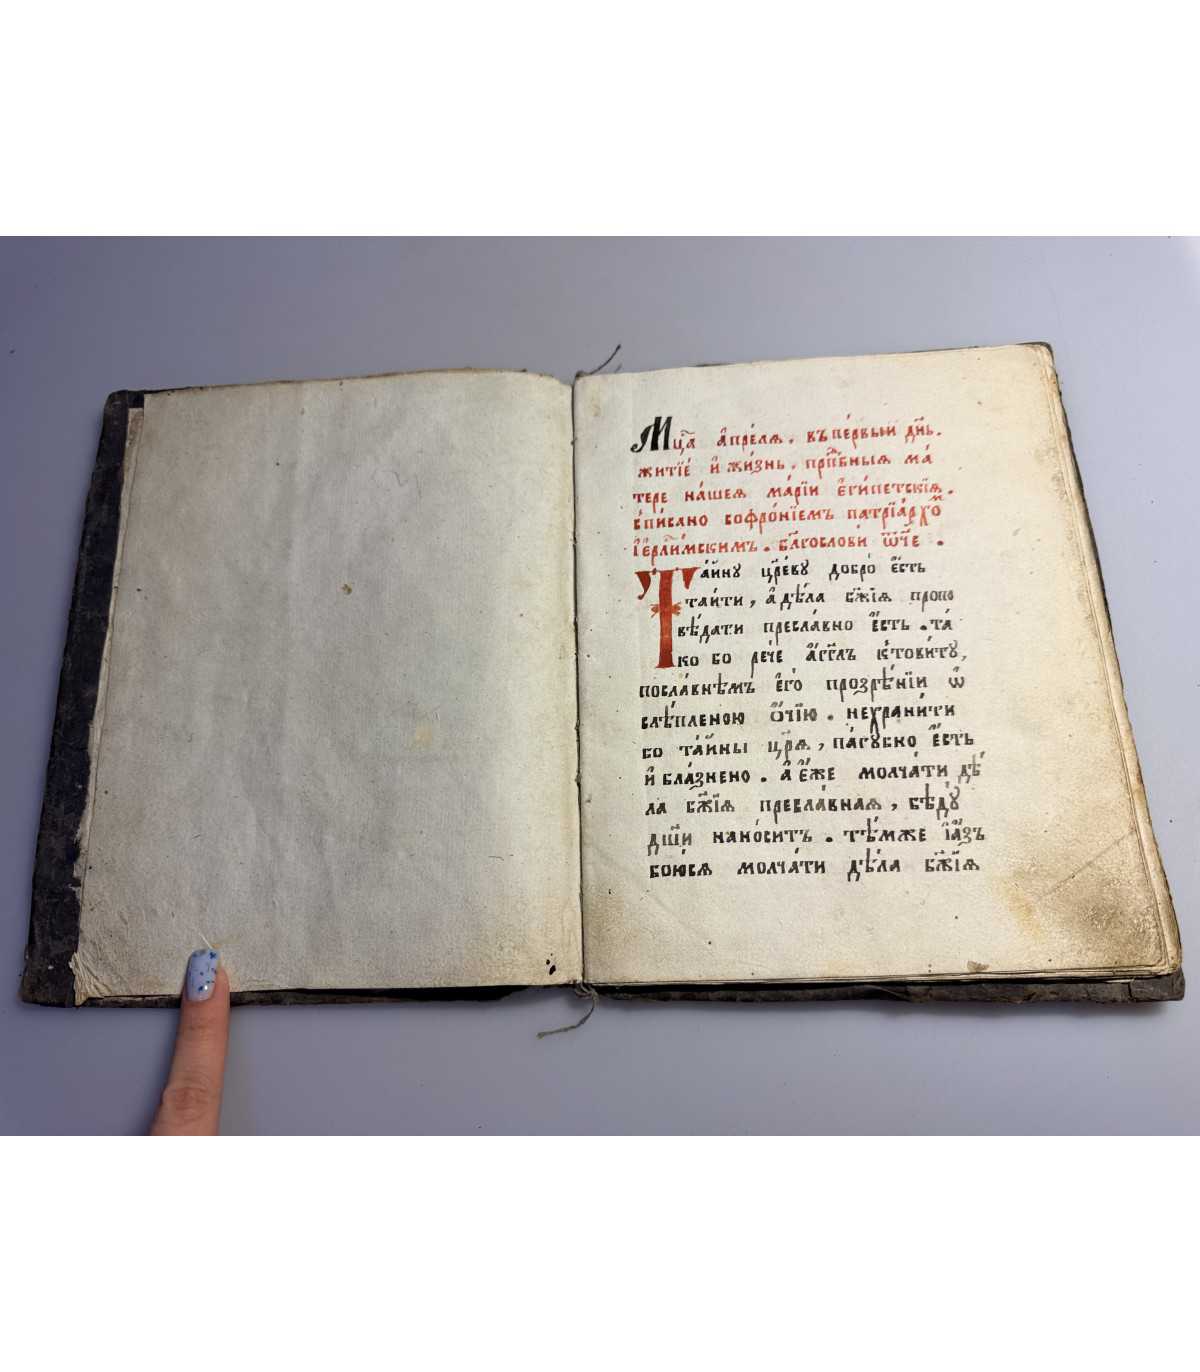 Мцⷭ҇а а҆прі́лѧ. въ пе́рвый дн҃ь.
житїе́ и҆ жи́знь. прпⷣбныѧ ма́
тере на́шеѧ мр҃і́и є҆ги́петскїѧ.
спи́сано софро́нїемъ патрїа́рхоⷨ
і҆ерⷭ҇ли́мскимъ. бл҃гослови́ ѻ҆́ч҃е.
Та́йну цр҃е́ву добро̀ є҆́сть
таи́ти, а҆ дѣ́ла бж҃їѧ пропо
вѣ́дати пресла́вно є҆́сть. та́
ко бо рече́ а҆́гг҃лъ к̾ тови́ту,
посла́внѣмъ є҆го̀ прозрѣ́нїи ѡ҆
слѣ́пленою ѻ҆́чїю. не храни́ти
бо та́йны цр҃ѧ, па́губно є҆́сть
и҆ бла́знено. а҆ є҆́же молча́ти дѣ́
ла бж҃їѧ пресла́внаѧ, бѣ́ду
дш҃и́ нано́ситъ. тѣ́мже і҆ а҆́зъ
бою́сѧ молча́ти дѣ́ла бж҃їѧ